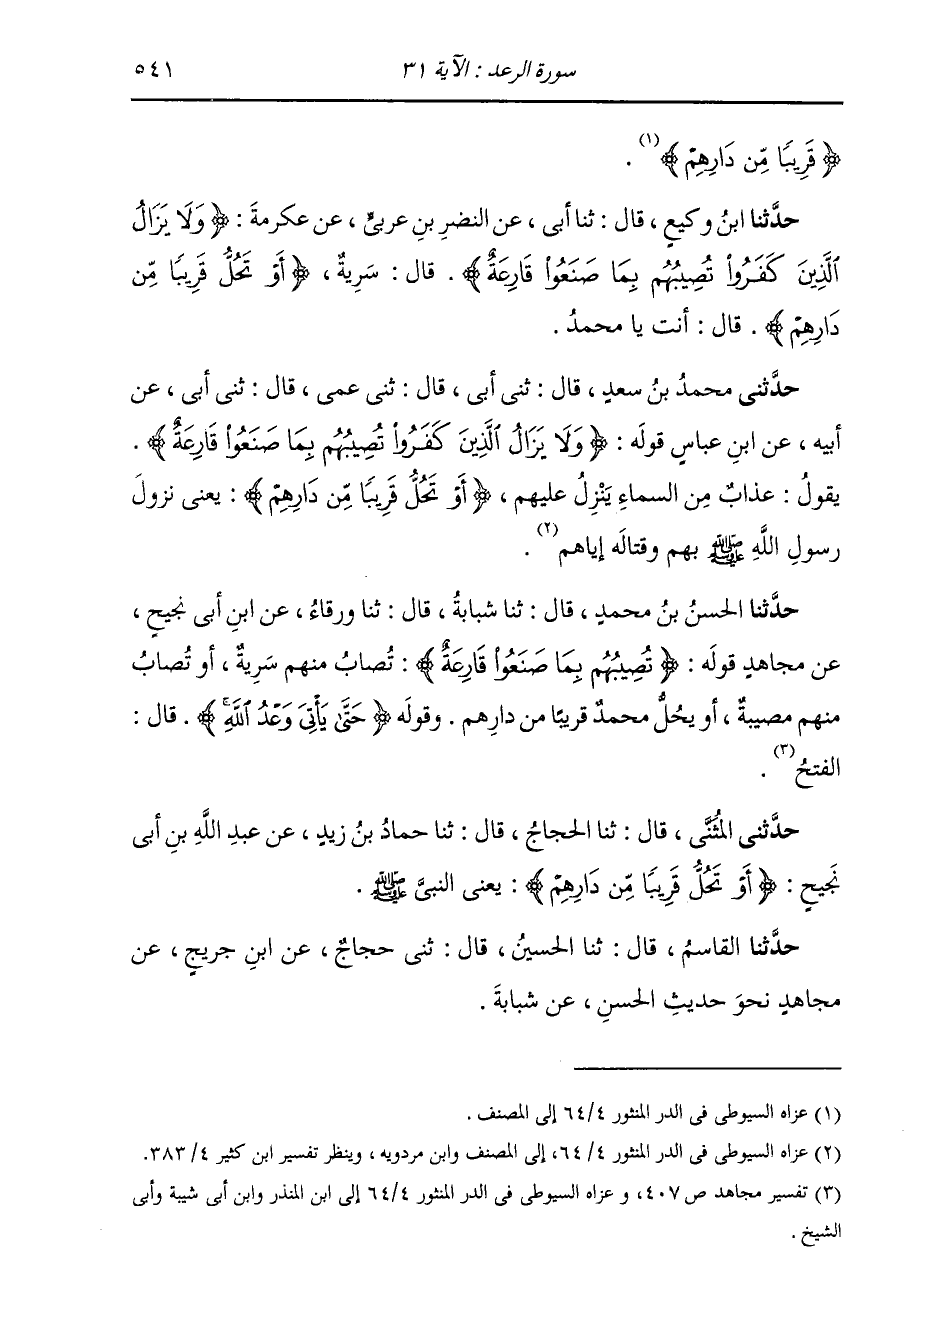 سورة الرعد : الآية ٣١ ٥٤١
﴿ قَرِيبًا مِّن دَارِهِمْ ﴾(١) .
حدَّثنا ابنُ وكيعٍ ، قال : ثنا أبى ، عن النضرِ بنِ عربىٍّ ، عن عكرمةَ : ﴿ وَلَا يَزَالُ
ٱلَّذِينَ كَفَرُواْ تُصِيبُهُم بِمَا صَنَعُواْ قَارِعَةٌ ﴾ . قال : سَرِيةٌ ، ﴿ أَوْ تَحُلُّ قَرِيبًا مِّن
دَارِهِمْ ﴾ . قال : أنت يا محمدُ .
حدَّثنى محمدُ بنُ سعدٍ ، قال : ثنى أبى ، قال : ثنى عمى ، قال : ثنى أبى ، عن
أبيه ، عن ابنِ عباسٍ قولَه : ﴿ وَلَا يَزَالُ ٱلَّذِينَ كَفَرُواْ تُصِيبُهُم بِمَا صَنَعُواْ قَارِعَةٌ ﴾ .
يقولُ : عذابٌ مِن السماءِ يَنْزِلُ عليهم ، ﴿ أَوْ تَحُلُّ قَرِيبًا مِّن دَارِهِمْ ﴾ : يعنى نزولَ
رسولِ اللَّهِ ﷺ بهم وقتالَه إياهم(٢) .
حدَّثنا الحسنُ بنُ محمدٍ ، قال : ثنا شبابةُ ، قال : ثنا ورقاءُ ، عن ابنِ أبى نجيحٍ ،
عن مجاهدٍ قولَه : ﴿ تُصِيبُهُم بِمَا صَنَعُواْ قَارِعَةٌ ﴾ : تُصابُ منهم سَرِيةٌ ، أو تُصابُ
منهم مصيبةٌ ، أو يحُلُّ محمدٌ قريبًا من دارِهم . وقولَه ﴿ حَتَّىٰ يَأْتِىَ وَعْدُ ٱللَّهِ ۚ ﴾ . قال :
الفتحُ(٣) .
حدَّثنى المُثَنَّى ، قال : ثنا الحجاجُ ، قال : ثنا حمادُ بنُ زيدٍ ، عن عبدِ اللَّهِ بنِ أبى
نَجيحٍ : ﴿ أَوْ تَحُلُّ قَرِيبًا مِّن دَارِهِمْ ﴾ : يعنى النبىَّ ﷺ .
حدَّثنا القاسمُ ، قال : ثنا الحسينُ ، قال : ثنى حجاجٌ ، عن ابنِ جريجٍ ، عن
مجاهدٍ نحوَ حديثِ الحسنِ ، عن شبابةَ .
(١) عزاه السيوطى فى الدر المنثور ٦٤/٤ إلى المصنف .
(٢) عزاه السيوطى فى الدر المنثور ٦٤/٤، إلى المصنف وابن مردويه ، وينظر تفسير ابن كثير ٣٨٣/٤.
(٣) تفسير مجاهد ص ٤٠٧، و عزاه السيوطى فى الدر المنثور ٦٤/٤ إلى ابن المنذر وابن أبى شيبة وأبى
الشيخ .